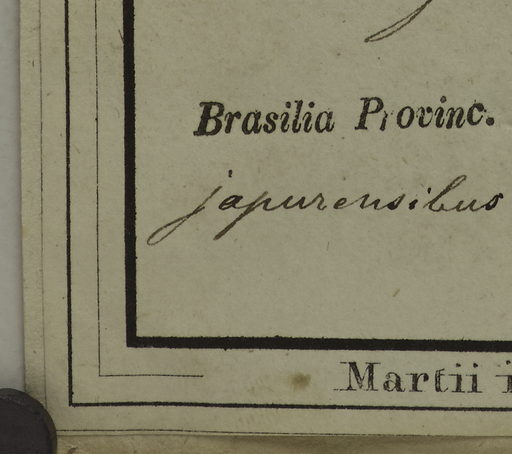 Brasilia Provinc.
japurensibus
Martii i